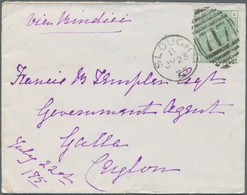 via Brindisi
SLOUGH
B
JY 23
Francis B Templer Esqr
Government Agent
Galle
Ceylon
July 22nd